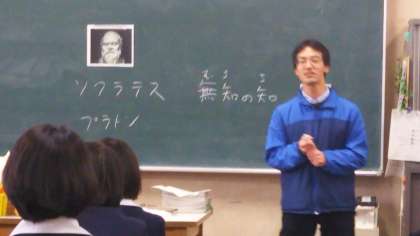 ソクラテス
無知の知
プラトン